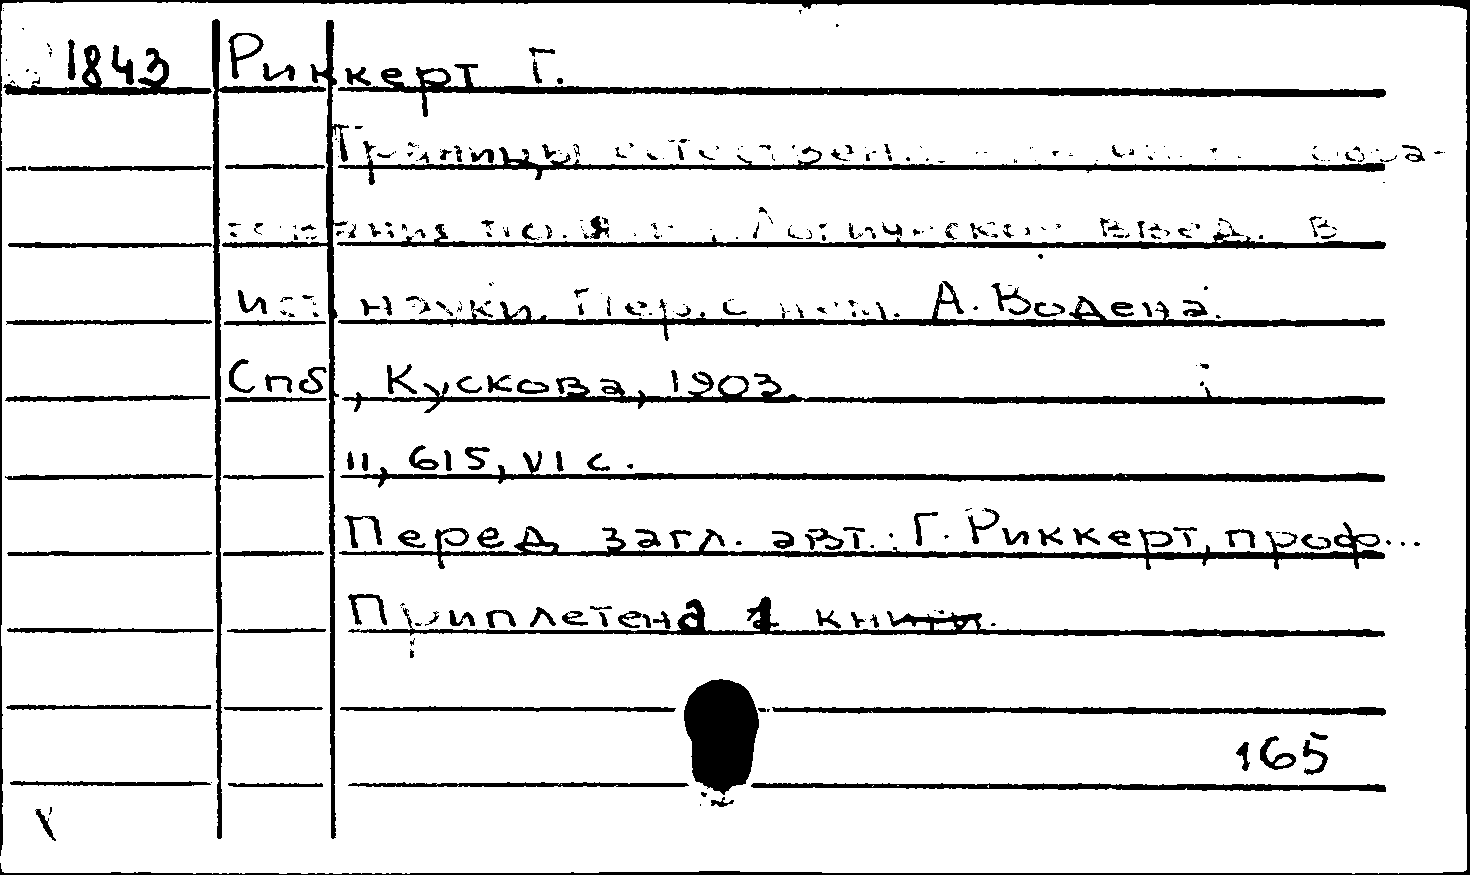 1843 Риккерт Г.
Границы естествен.
Логическое введ. в
ист. науки. Пер. с нем. А. Водена.
Спб., Кускова, 1903.
II, 615, VI с.
Перед загл. авт.: Г. Риккерт, проф...
Приплетена 1 книги.
165